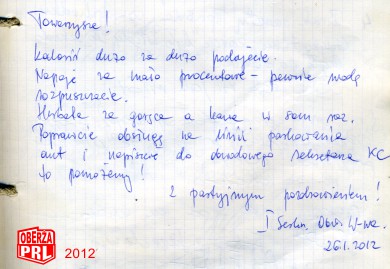 Towarzysze!
Kalorii dużo za dużo podajecie.
Napoje za mało procentowe - pewnie wodą
rozpuszczacie.
Herbata za gorąca a kawa w sam raz.
Poprawcie obsługę na linii parkowania
aut i napiszcie do obwodowego sekretarza KC
to pomożemy!
Z partyjnym pozdrowieniem!
I Sekr. Obw. W-wa.
26.1.2012
OBERŻA
PRL
2012